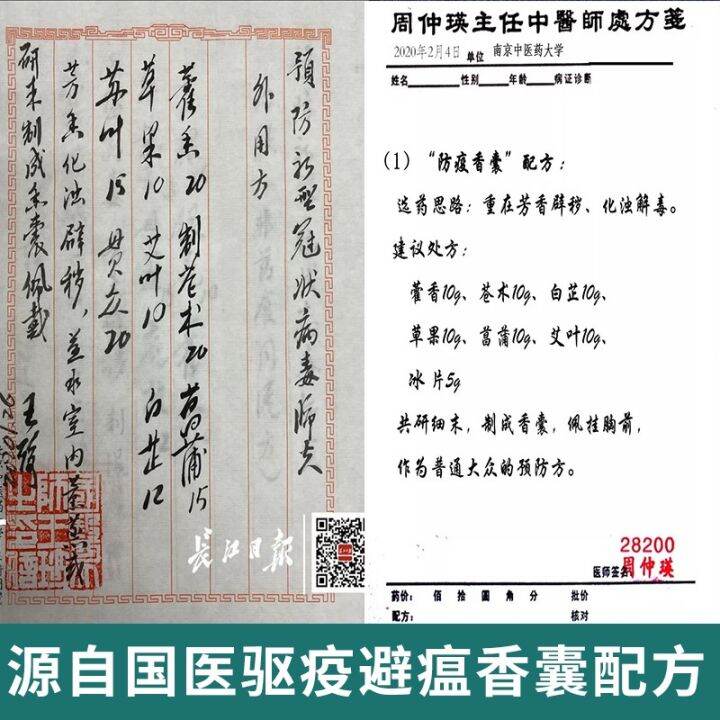 預防新型冠状病毒肺炎
外用方
藿香20 制苍术20 菖蒲15
草果10 艾叶10 白芷12
苏叶15 贯众20
芳香化浊辟秽，煎水室内薰蒸或
研末制成香囊佩戴
王琦
长江日報
周仲瑛主任中醫師處方箋
2020年2月4日 单位 南京中医药大学
姓名 性别 年龄 病证诊断
(1) “防疫香囊”配方：
选药思路：重在芳香辟秽、化浊解毒。
建议处方：
藿香10g、苍术10g、白芷10g、
草果10g、菖蒲10g、艾叶10g、
冰片5g
共研细末，制成香囊，佩挂胸前，
作为普通大众的预防方。
28200
医师签名 周仲瑛
药价： 佰 拾 圆 角 分 批价
配方： 核对
源自国医驱疫避瘟香囊配方